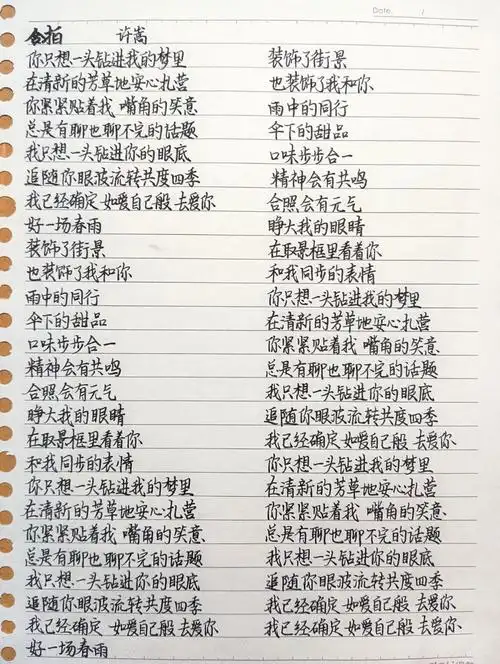 Date. /
合拍 许嵩
你只想一头钻进我的梦里
在清新的芳草地安心扎营
你紧紧贴着我 嘴角的笑意
总是有聊也聊不完的话题
我只想一头钻进你的眼底
追随你眼波流转共度四季
我已经确定 如爱自己般 去爱你
好一场春雨
装饰了街景
也装饰了我和你
雨中的同行
伞下的甜品
口味步步合一
精神会有共鸣
合照会有元气
睁大我的眼睛
在取景框里看着你
和我同步的表情
你只想一头钻进我的梦里
在清新的芳草地安心扎营
你紧紧贴着我 嘴角的笑意
总是有聊也聊不完的话题
我只想一头钻进你的眼底
追随你眼波流转共度四季
我已经确定 如爱自己般 去爱你
好一场春雨
装饰了街景
也装饰了我和你
雨中的同行
伞下的甜品
口味步步合一
精神会有共鸣
合照会有元气
睁大我的眼睛
在取景框里看着你
和我同步的表情
你只想一头钻进我的梦里
在清新的芳草地安心扎营
你紧紧贴着我 嘴角的笑意
总是有聊也聊不完的话题
我只想一头钻进你的眼底
追随你眼波流转共度四季
我已经确定 如爱自己般 去爱你
你只想一头钻进我的梦里
在清新的芳草地安心扎营
你紧紧贴着我 嘴角的笑意
总是有聊也聊不完的话题
我只想一头钻进你的眼底
追随你眼波流转共度四季
我已经确定 如爱自己般 去爱你
我已经确定 如爱自己般 去爱你